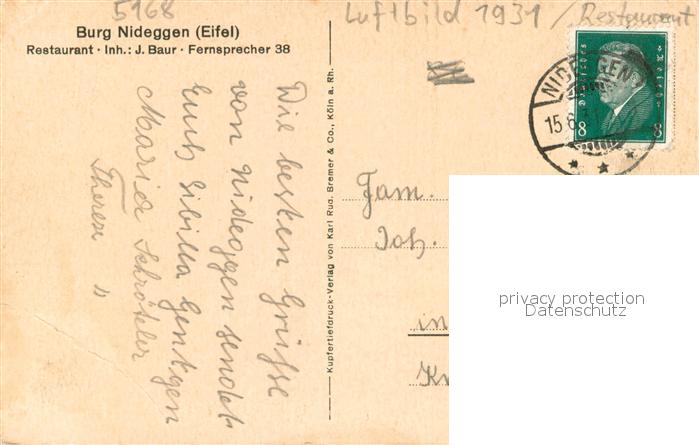 5168
Luftbild 1931 / Restaurant
Burg Nideggen (Eifel)
Restaurant · Inh.: J. Baur · Fernsprecher 38
Die besten Grüsse
von Nideggen sendet
Euch Sibilla Gentgen
Maria Schröteler
Therese "
Kupfertiefdruck-Verlag von Karl Rud. Bremer & Co., Köln a. Rh.
NIDEGGEN
15.6.
Deutsches Reich
8 8
Fam.
Joh.
in
privacy protection
Datenschutz